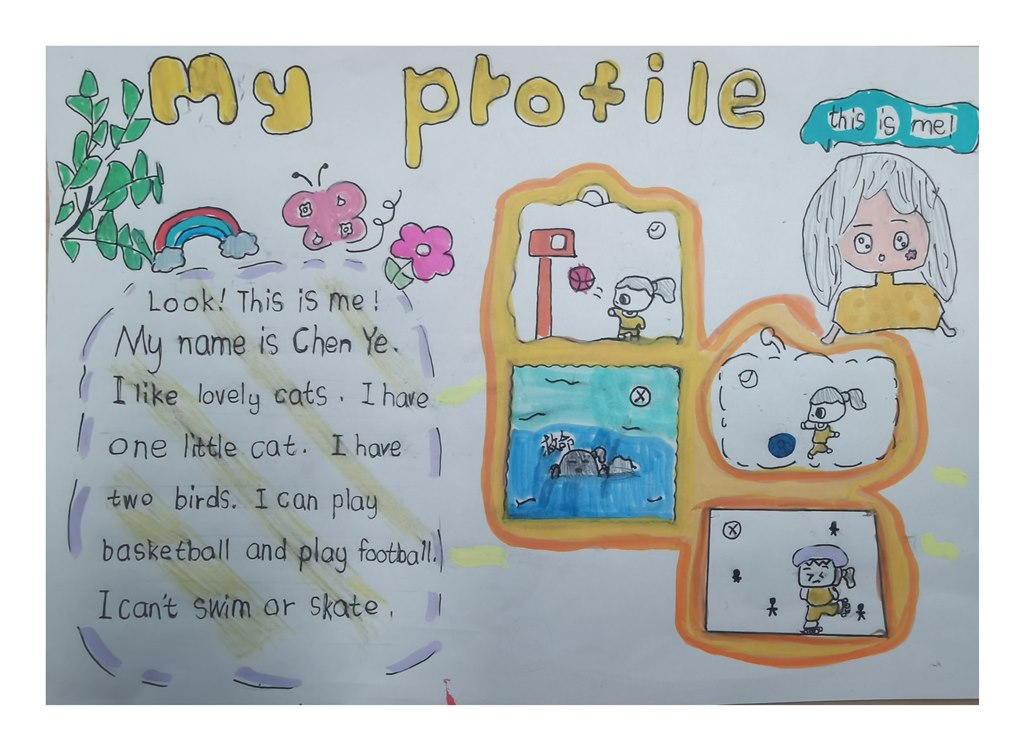 My profile
this is me!
Look! This is me!
My name is Chen Ye.
I like lovely cats. I have
one little cat. I have
two birds. I can play
basketball and play football.
I can't swim or skate.
救命